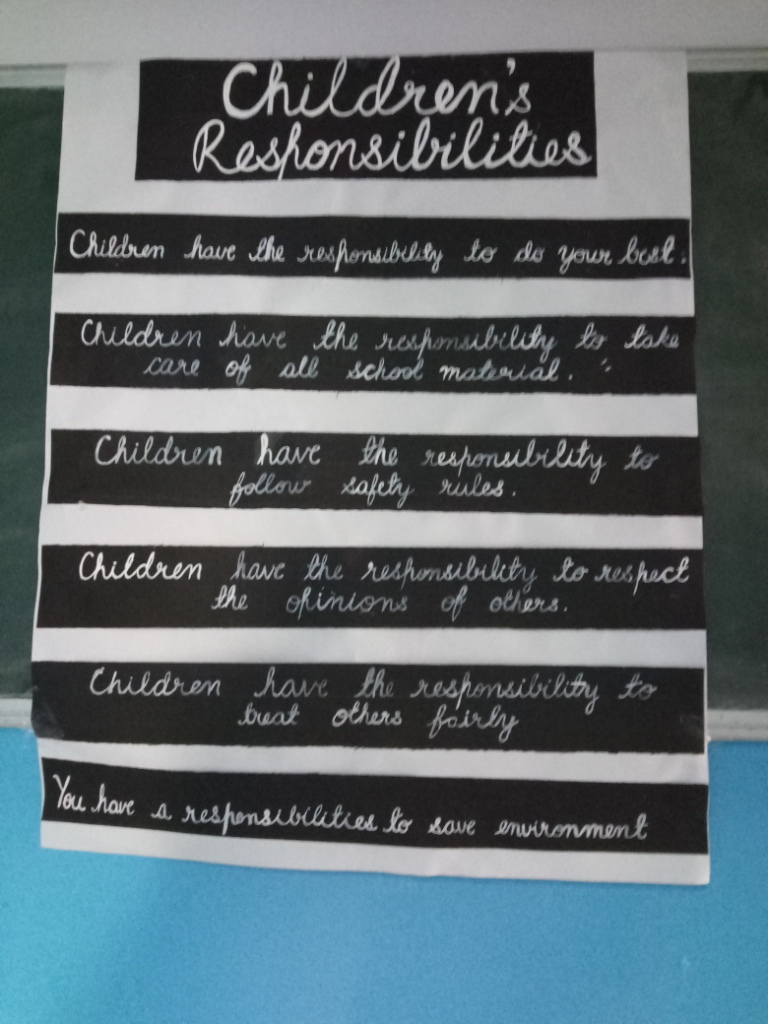 Children's
Responsibilities
Children have the responsibility to do your best.
Children have the responsibility to take
care of all school material.
Children have the responsibility to
follow safety rules.
Children have the responsibility to respect
the opinions of others.
Children have the responsibility to
treat others fairly
You have a responsibilities to save environment